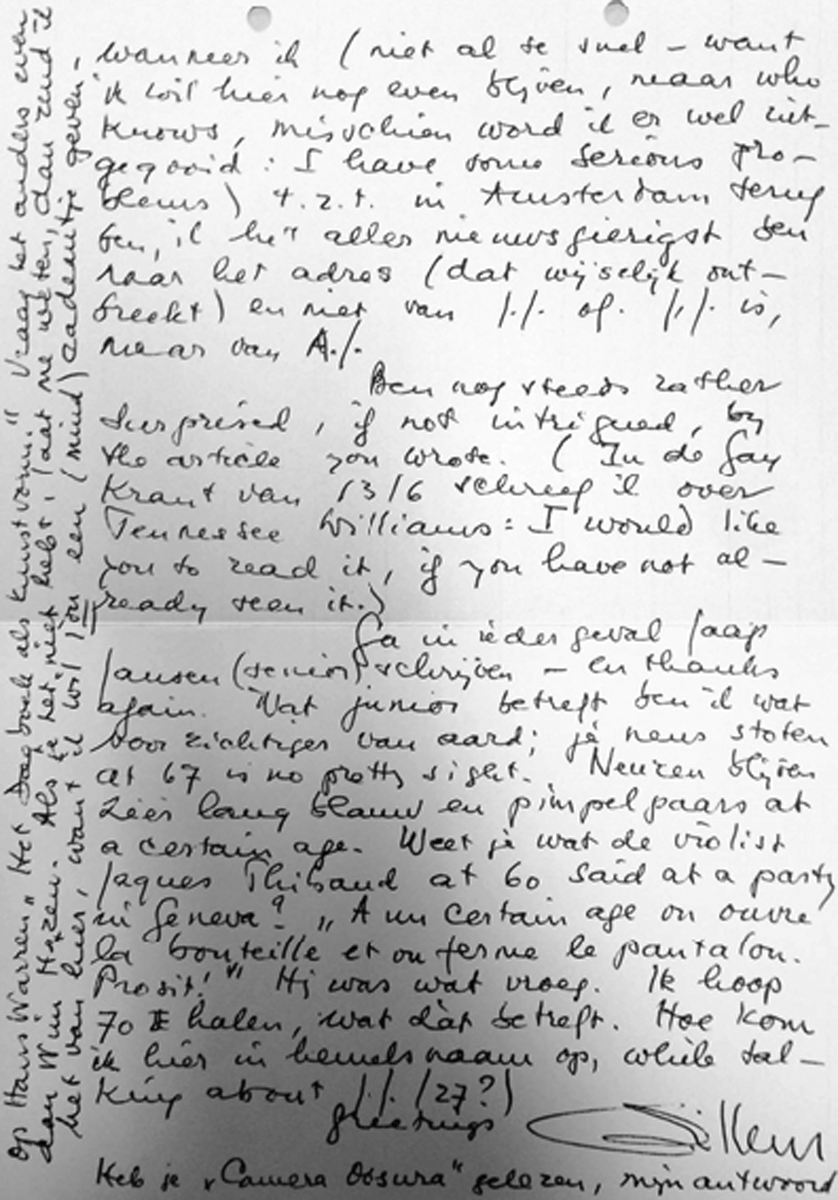 wanneer ik (niet al te snel – want
ik wil hier nog even blijven, maar who
knows, misschien word ik er wel uit-
gegooid: I have some serious pro-
blems) t.z.t. in Amsterdam terug
ben, ik het aller nieuwsgierigst ben
naar het adres (dat wijselijk ont-
breekt) en niet van J.J. of J.J. is,
maar van A.J.
Ben nog steeds rather
surprised, if not intrigued, by
the article you wrote. (In de Gay
Krant van 13/6 schreef ik over
Tennessee Williams: I would like
you to read it, if you have not al-
ready seen it.)
Ga in ieder geval Jaap
Jansen (senior) schrijven – en thanks
again. Wat junior betreft ben ik wat
voorzichtiger van aard; je neus stoten
at 67 is no pretty sight. Neuzen blijven
zéér lang blauw en pimpelpaars at
a certain age. Weet je wat de violist
Jaques Thibaud at 60 said at a party
in Genève? „A un certain age on ouvre
la bouteille et on ferme le pantalon.
Prosit!" Hij was wat vroeg. Ik hoop
70 te halen, wat dàt betreft. Hoe kom
ik hier in hemelsnaam op, while tal-
king about J.J. (27?)
greetings Willem
Heb je „Camera Obsura" gelezen, mijn antwoord
op Hans Warren „Het Dagboek als kunstvorm." Vraag het anders even
aan Wim Hazeu. Als je het niet hebt, laat me weten, dan zend ik
het van hier, want ik wil jou een (mind) cadeautje geven.